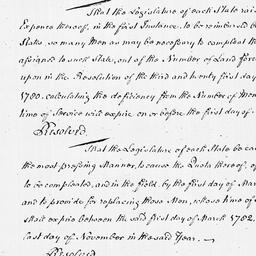 That the Legislature of each State rai
Expence thereof, in the first Instance, to be reimbursed b
State, so many Men as may be necessary to compleat th
assigned to such State, out of the Number of
upon in the Resolution of the third and twenty first day
1780. calculating the deficiency from the Number of Men
time of Service will expire on or before the first day of
Resolved.
That the Legislature of each State be ca
the most pressing Manner, to cause the Quota thereof, of
to be compleated, and in the field, by the first day of Mar
and to provide for replacing those Men, whose time of
shall expire between the said first day of March 1782,
last day of November in the said Year.
Resolved